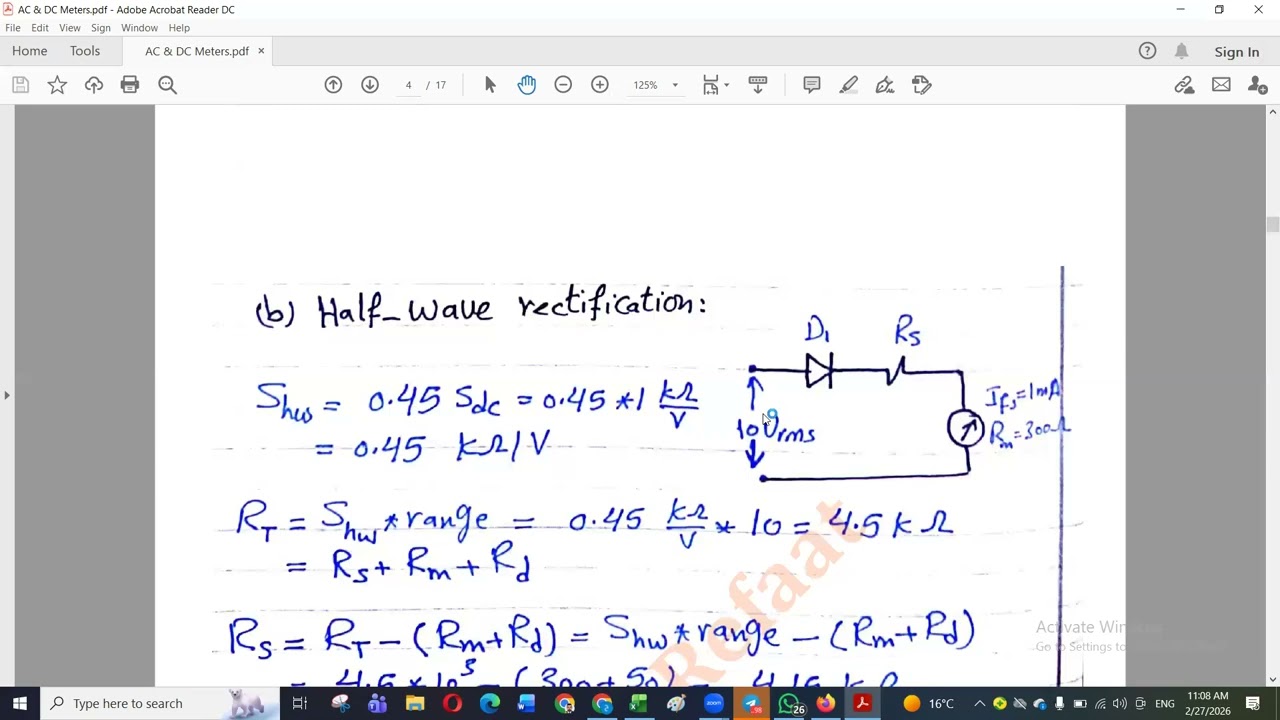 AC & DC Meters.pdf - Adobe Acrobat Reader DC
File Edit View Sign Window Help
Home Tools AC & DC Meters.pdf × Sign In
4 / 17 125%
(b) Half-wave rectification:
D1 Rs
Shw = 0.45 Sdc = 0.45 *1 kΩ/V
= 0.45 kΩ/V
Ifs=1mA
10 Vrms Rm=300Ω
RT = Shw*range = 0.45 kΩ/V * 10 = 4.5 kΩ
= Rs + Rm + Rd
Refaat
Rs = RT - (Rm+Rd) = Shw*range - (Rm+Rd)
Activate Win
Go to Settings to
= 4.5 *10³ - (300+50) =
Type here to search
98
26
16°C
ENG
11:08 AM
2/27/2026